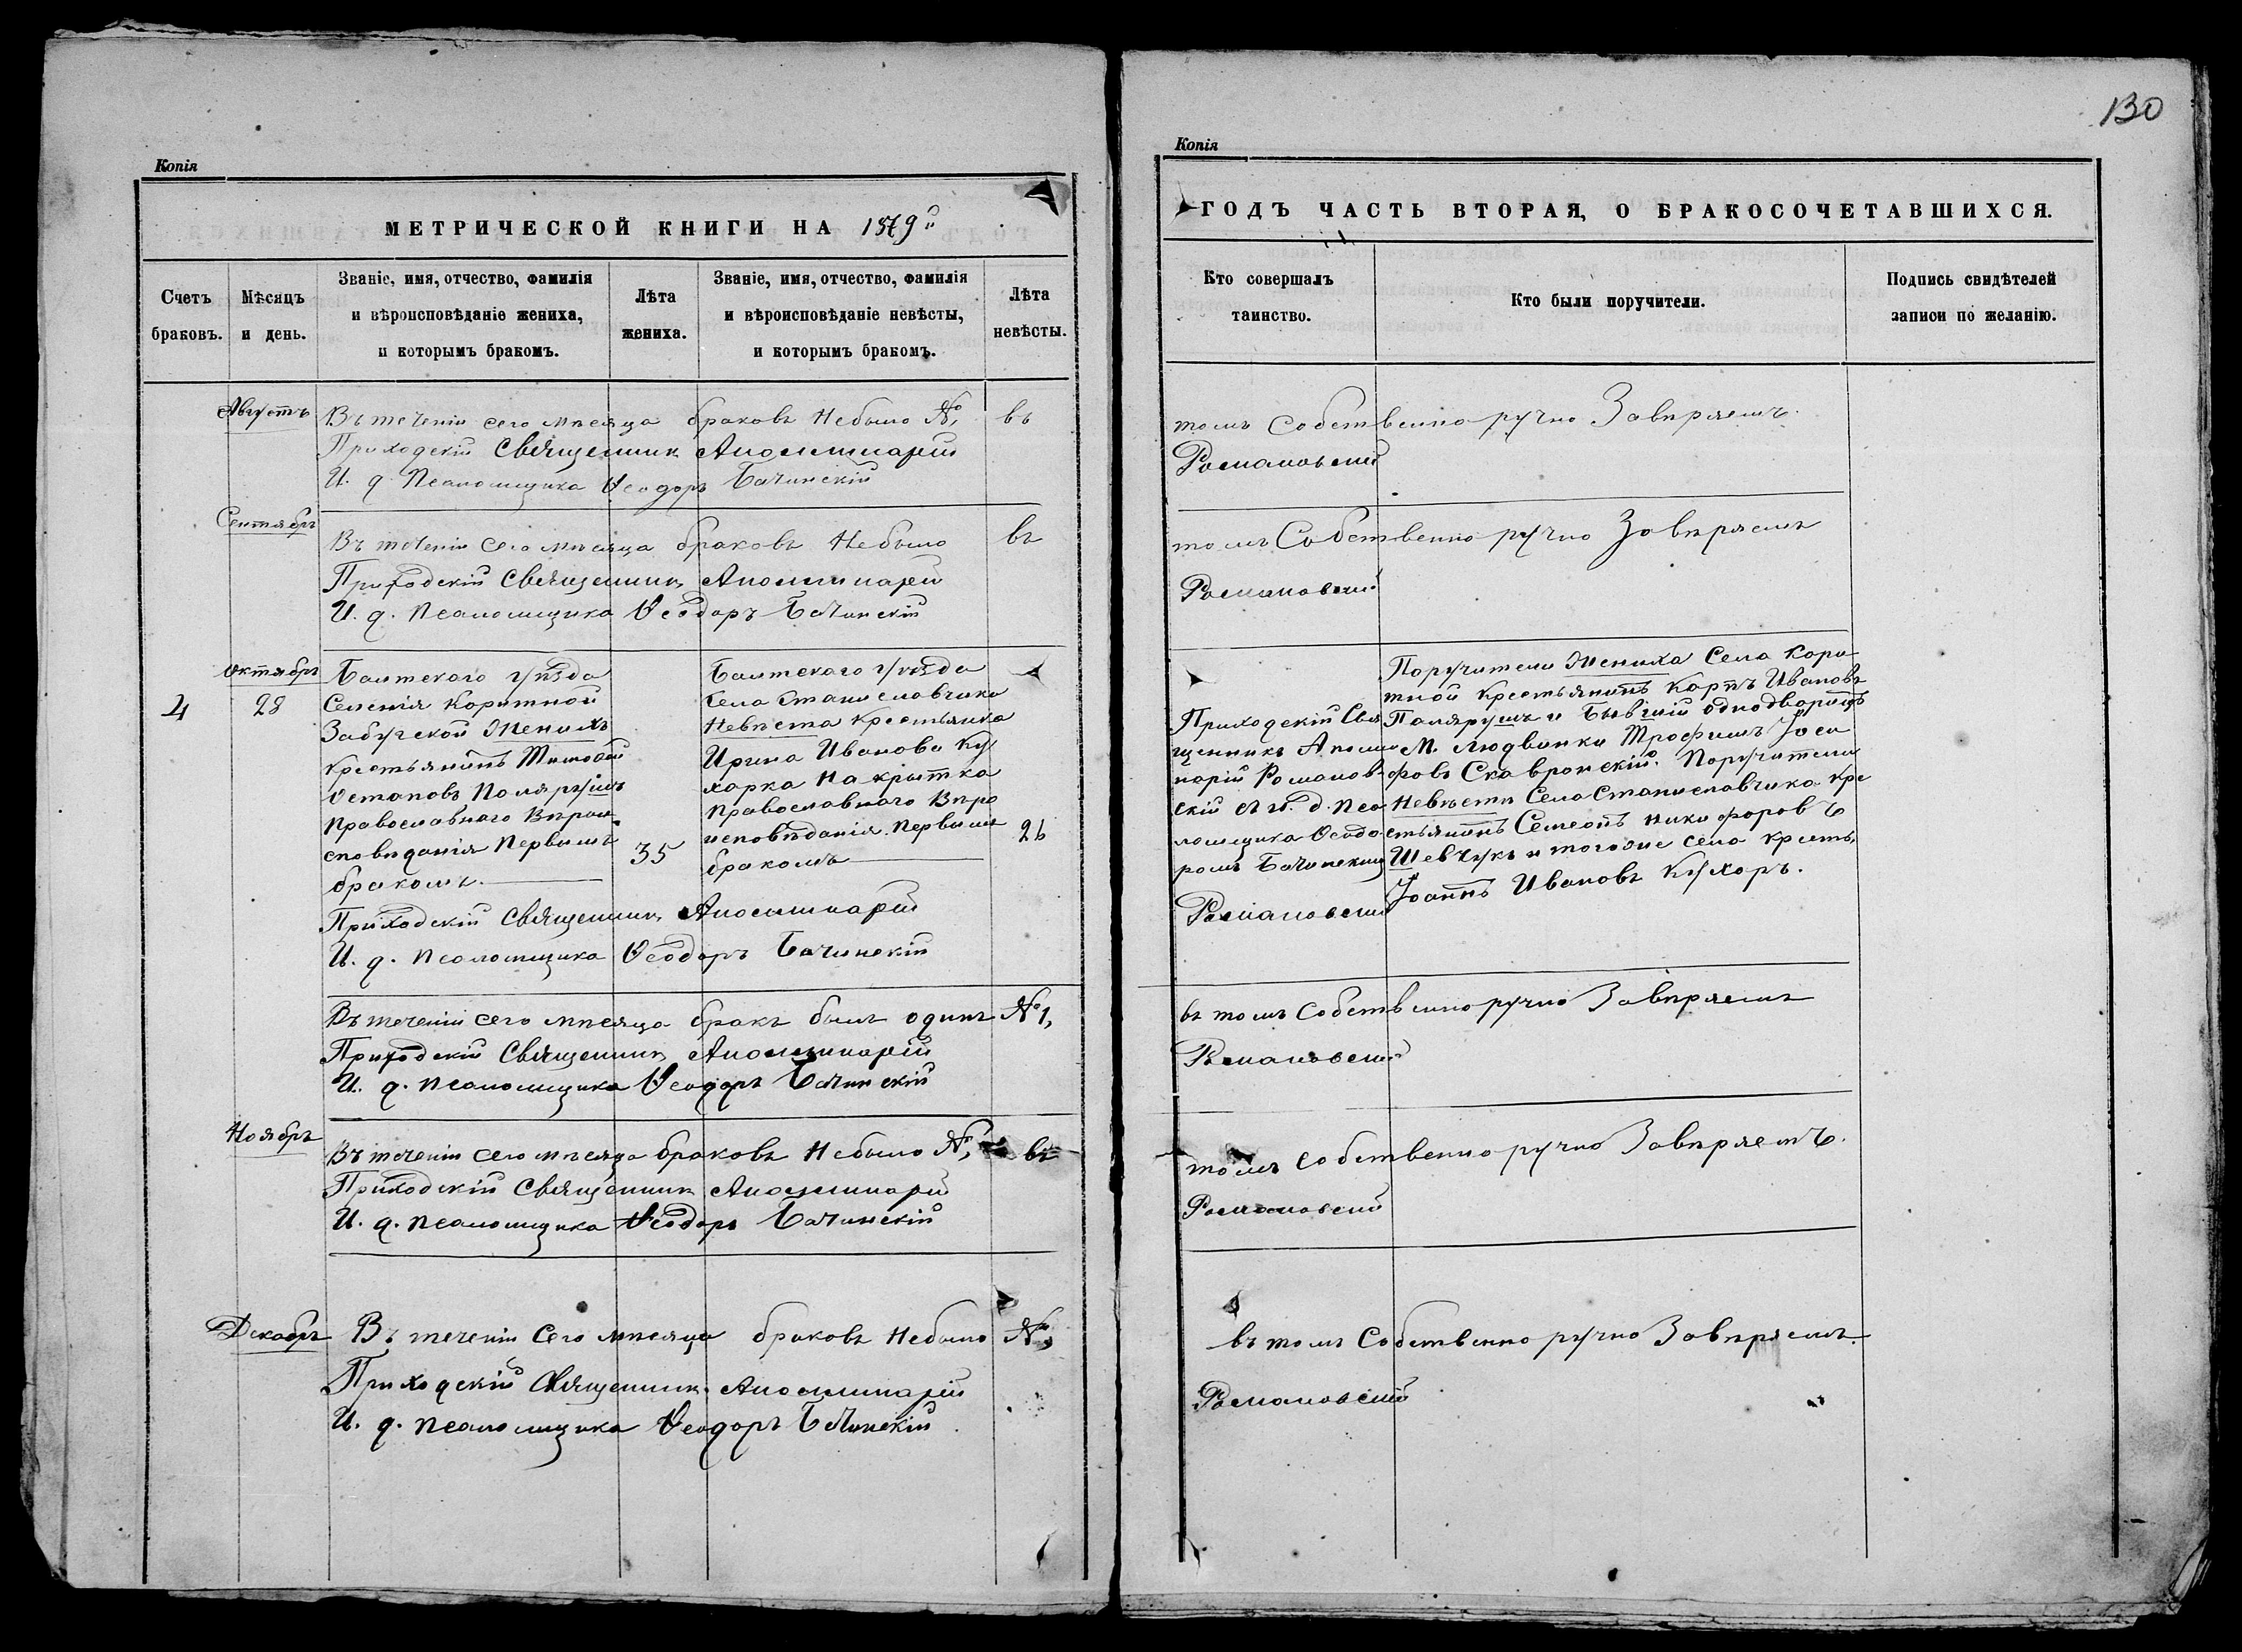 130
Копія
МЕТРИЧЕСКОЙ КНИГИ НА 1879й
Счетъ браковъ.
Мѣсяцъ и день.
Званіе, имя, отчество, фамилія
и вѣроисповѣданіе жениха,
и которымъ бракомъ.
Лѣта жениха.
Званіе, имя, отчество, фамилія
и вѣроисповѣданіе невѣсты,
и которымъ бракомъ.
Лѣта невѣсты.
Августъ
Въ теченіи сего мѣсяца браковъ небыло №, въ
Приходскій Священник Аполлинарій
И. д. Псаломщика Ѳеодоръ Бачинскій
Сентябръ
Въ теченіи сего мѣсяца браковъ небыло въ
Приходскій Священник Аполлинарій
И. д. Псаломщика Ѳеодоръ Бачинскій
Октябръ
4
28
Балтскаго уѣзда
Селенія Коритной
Забугской Женихъ
Крестьянинъ Тимофей
Остаповъ Полярушъ
Православнаго Вѣрои
сповѣданія Первымъ
бракомъ.
35
Балтскаго уѣзда
Села Станиславчика
Невѣста Крестьянка
Ирина Иванова Ку
харка Накрытка
Православнаго Вѣро
исповѣданія Первымъ
бракомъ
26
Приходскій Священник Аполлинарій
И. д. Псаломщика Ѳеодоръ Бачинскій
Въ теченіи сего мѣсяца бракъ былъ одинъ №1,
Приходскій Священник Аполлинарій
И. д. Псаломщика Ѳеодоръ Бачинскій
Ноябръ
Въ теченіи сего мѣсяца браковъ небыло №, въ
Приходскій Священник Аполлинарій
И. д. Псаломщика Ѳеодоръ Бачинскій
Декабръ
Въ теченіи Сего мѣсяца браковъ небыло №,
Приходскій Священник Аполлинарій
И. д. Псаломщика Ѳеодоръ Бачинскій
Копія
ГОДЪ ЧАСТЬ ВТОРАЯ, О БРАКОСОЧЕТАВШИХСЯ.
Кто совершалъ
таинство.
Кто были поручители.
Подпись свидѣтелей
записи по желанію.
томъ Собственноручно Завѣряемъ.
Романовскій
томъ Собственноручно Завѣряемъ
Романовскій
Приходскій Свя
щенникъ Аполли
нарій Романов
скій съ и. д. Пса
ломщика Ѳеодо
ромъ Бачинским
Поручители Жениха Села Кори
тной Крестьянинъ Карпъ Ивановъ
Поляруш и Бывшій однодворецъ
М. Людвинки Трофимъ Іоси
фовъ Скавронскій. Поручители
Невѣсты Села Станиславчика Кре
стьянинъ Семеонъ Никифоровъ
Шевчукъ и тогоже села Крестъ.
Іоаннъ Ивановъ Кухоръ.
Романовскій
въ томъ Собственноручно Завѣряемъ
Романовскій
томъ собственноручно Завѣряемъ.
Романовскій
въ томъ Собственноручно Завѣряемъ.
Романовскій